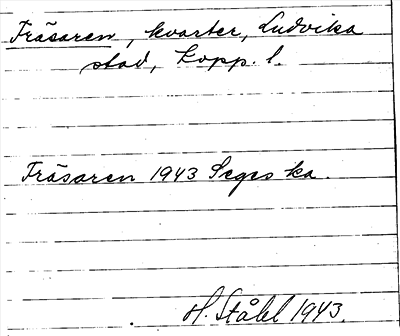 Fräsaren, kvarter, Ludvika
stad, Kopp. l.
Fräsaren 1943 Seges ka.
H. Ståhl 1943